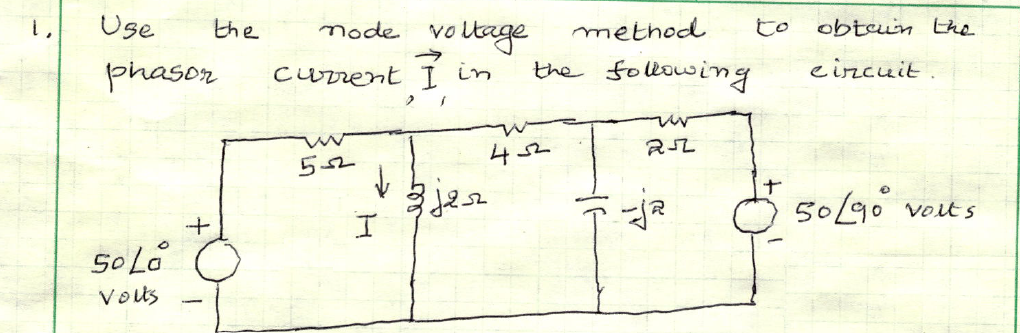 1. Use the node voltage method to obtain the
phasor current I⃗ in the following circuit.
5Ω
4Ω
2Ω
I
j2Ω
-j2
+
50∠90° volts
-
+
50∠0°
volts
-